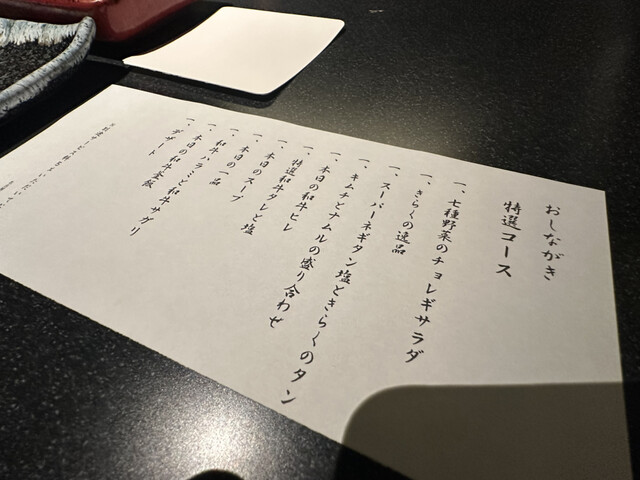 おしながき
特選コース
一、七種野菜のチョレギサラダ
一、きらくの逸品
一、スーパーネギタン塩ときらくのタン
一、キムチとナムルの盛り合わせ
一、本日の和牛ヒレ
一、特選和牛タレと塩
一、本日のスープ
一、本日の一品
一、和牛ハラミと和牛サガリ
一、本日の和牛茶飯
一、デザート